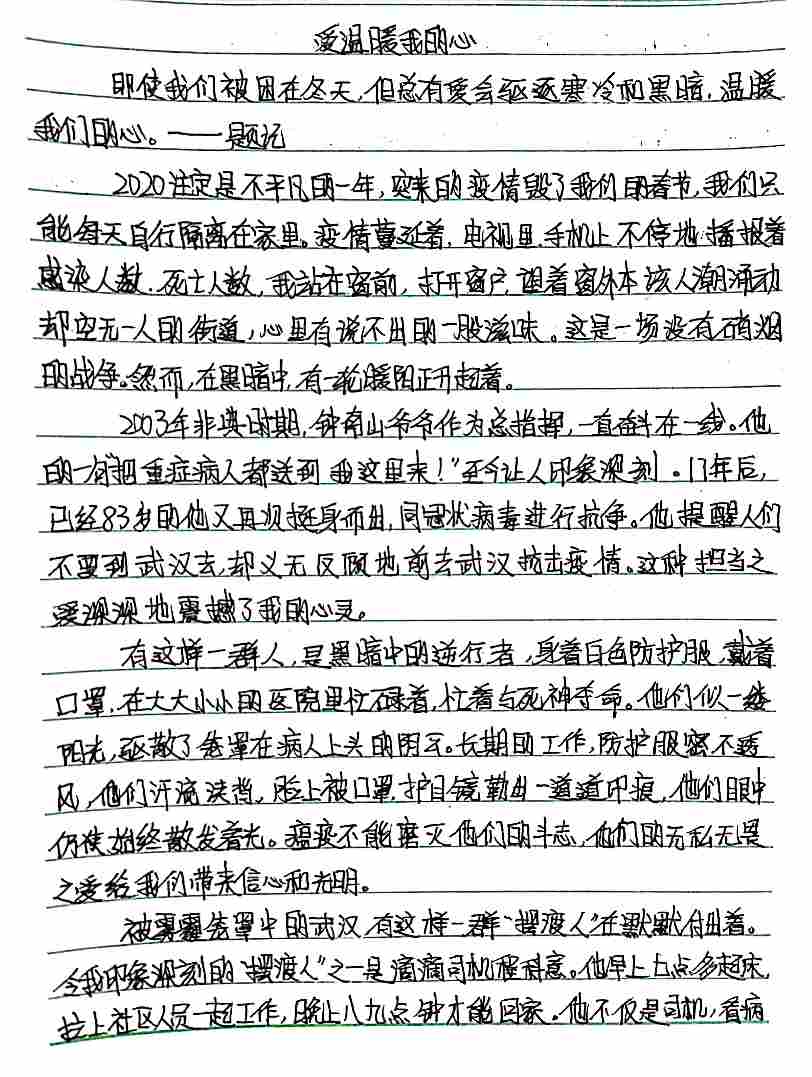 爱温暖我的心
即使我们被困在冬天,但总有爱会驱逐寒冷和黑暗,温暖
我们的心。——题记
2020注定是不平凡的一年,突来的疫情毁了我们的春节,我们只
能每天自行隔离在家里。疫情蔓延着,电视里、手机上不停地播报着
感染人数、死亡人数,我站在窗前,打开窗户,望着窗外本该人潮涌动
却空无一人的街道,心里有说不出的一股滋味。这是一场没有硝烟
的战争。然而,在黑暗中,有一轮暖阳正升起着。
2003年非典时期,钟南山爷爷作为总指挥,一直奋斗在一线。他
的一句“把重症病人都送到我这里来!”至今让人印象深刻。17年后,
已经83岁的他又再次挺身而出,同冠状病毒进行抗争。他提醒人们
不要到武汉去,却义无反顾地前去武汉抗击疫情。这种担当之
爱深深地震撼了我的心灵。
有这样一群人,是黑暗中的逆行者,身着白色防护服,戴着
口罩,在大大小小的医院里忙碌着,忙着与死神夺命。他们似一缕
阳光,驱散了笼罩在病人上头的阴云。长期的工作,防护服密不透
风,他们汗流浃背,脸上被口罩、护目镜勒出一道道印痕,他们眼中
仍旧始终散发着光。瘟疫不能磨灭他们的斗志,他们的无私无畏
之爱给我们带来信心和光明。
被雾霾笼罩中的武汉,有这样一群“摆渡人”在默默付出着。
令我印象深刻的“摆渡人”之一是滴滴司机程科意。他早上七点多起床,
拉上社区人员一起工作,晚上八九点钟才能回家。他不仅是司机,看病